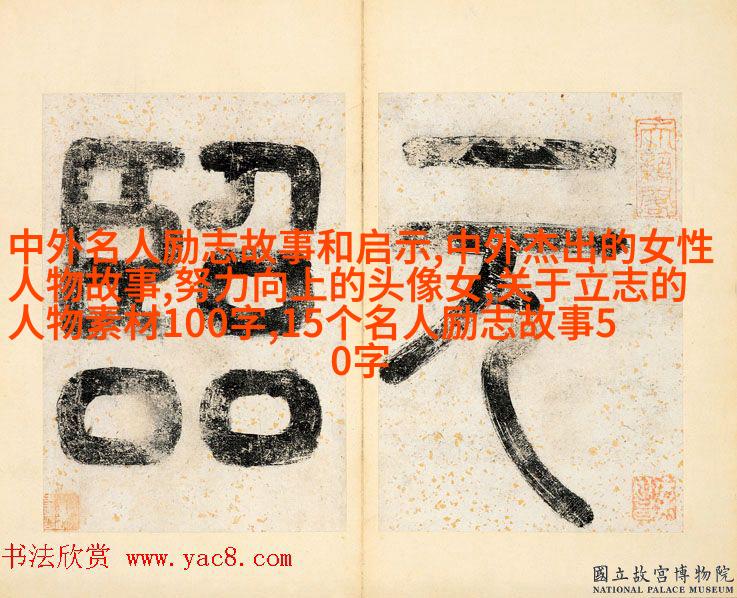 中外名人励志故事和启示,中外杰出的女性
人物故事,努力向上的头像女,关于立志的
人物素材100字,15个名人励志故事5
0字
元
书法欣赏 www.yac8.com
國立故宮博物院
NATIONAL PALACE MUSEUM